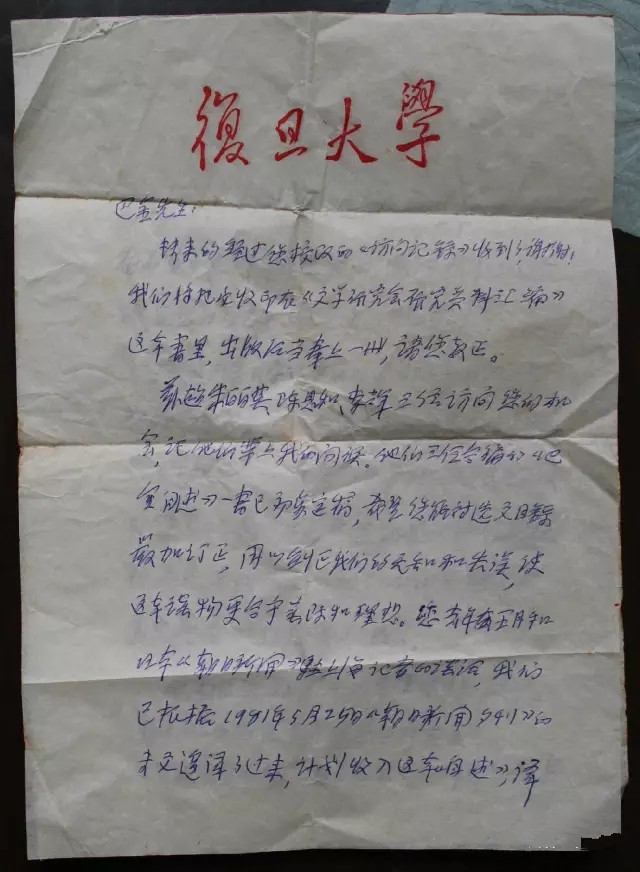 復旦大學
巴金先生：
转来的经过您校改的《访问记录》收到了，谢谢！
我们将把它收印在《文学研究会研究资料汇编》
这本书里，出版后当奉上一册，请您教正。
兹趁朱百其、陈思和、李辉三位访问您的机
会，让他们带上我的问候。他们三位合编的《巴
金自述》一书已初步定稿，希望您能对选文目录
严加订正，用以纠正我们的无知和失误，使
这本读物更合乎实际和理想。您去年五月和
日本《朝日新闻》驻上海记者的谈话，我们
已根据1981年5月25日《朝日新闻夕刊》的
本文译了过来，计划收入这本《自述》，译